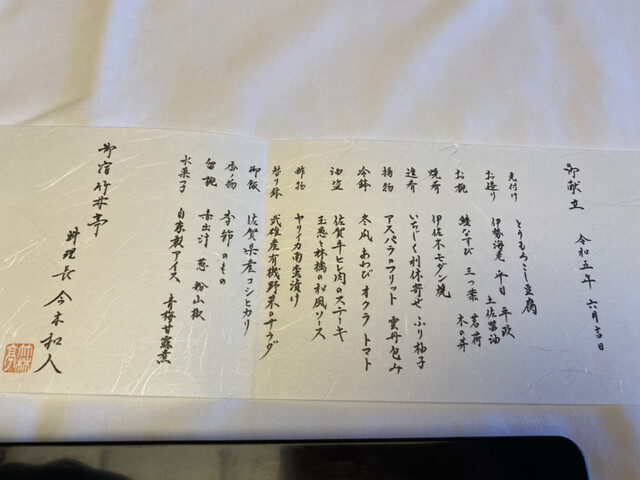 御献立　令和五年　六月吉日
先付け　とうもろこし豆腐
お造り　伊勢海老　平目　平政
土佐醤油
お椀　鮭なすび　三つ葉　茗荷
木の芽
焼肴　伊佐木モダン焼
進肴　いちじく利休寄せ　ふり柚子
揚物　アスパラのフリット　雲丹包み
冷鉢　冬瓜　あわび　オクラ　トマト
佐賀牛ヒレ肉のステーキ
玉葱と林檎の和風ソース
酢物　ヤリイカ南蛮漬け
替り鉢　武雄産有機野菜のサラダ
御飯　佐賀県産コシヒカリ
香の物　季節のもの
留椀　赤出汁　葱　粉山椒
水菓子　自家製アイス　青梅甘露煮
御宿　竹林亭
料理長　今木和人